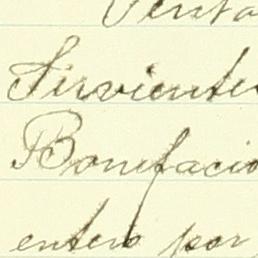 Venta
Sirviente
Bonifacio
entero por